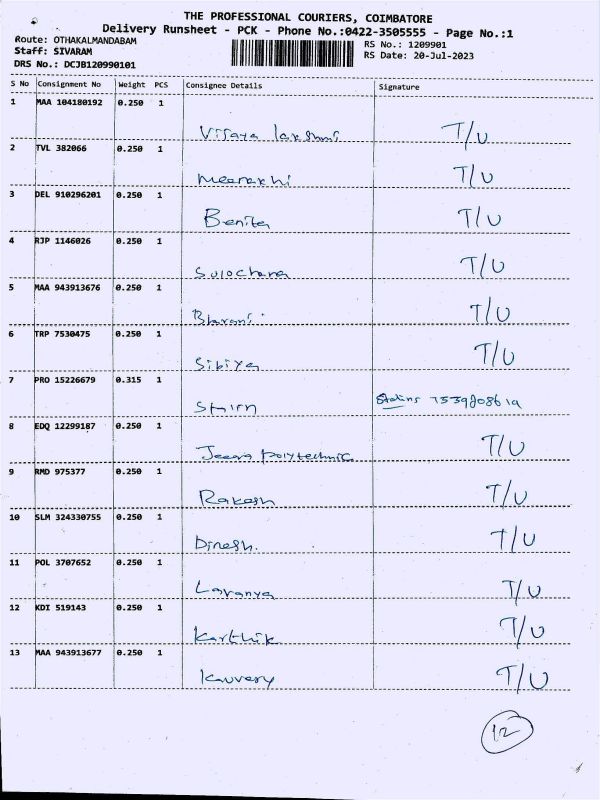 THE PROFESSIONAL COURIERS, COIMBATORE
Delivery Runsheet - PCK - Phone No.:0422-3505555 - Page No.:1
Route: OTHAKALMANDABAM RS No.: 1209901
Staff: SIVARAM RS Date: 20-Jul-2023
DRS No.: DCJB120990101
S No Consignment No Weight PCS Consignee Details Signature
1 MAA 104180192 0.250 1
Vijaya lakshmi T/U
2 TVL 382066 0.250 1
Meenakhi T/U
3 DEL 910296201 0.250 1
Benita T/U
4 RJP 1146026 0.250 1
Sulochana T/U
5 MAA 943913676 0.250 1
Bharani T/U
6 TRP 7530475 0.250 1
Sibiya T/U
7 PRO 15226679 0.315 1
8 EDQ 12299187 0.250 1
Polytechnic T/U
9 RMD 975377 0.250 1
Rakesh T/U
10 SLM 324330755 0.250 1
Dinesh. T/U
11 POL 3707652 0.250 1
Lavanya T/U
12 KDI 519143 0.250 1
Karthik T/U
13 MAA 943913677 0.250 1
Kauvery T/U
12